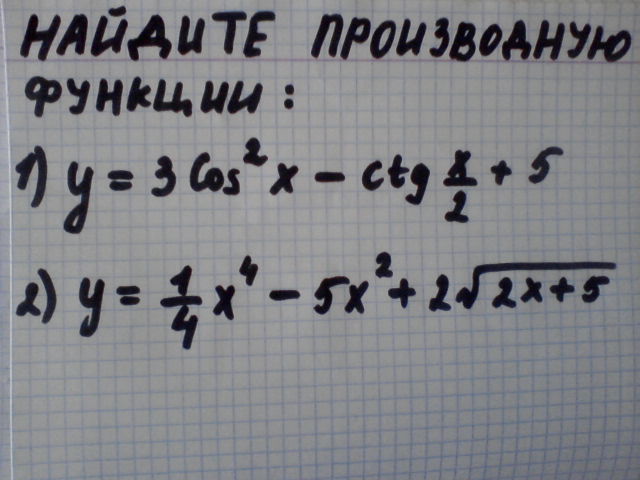 НАЙДИТЕ ПРОИЗВОДНУЮ
ФУНКЦИИ:
1) y = 3 cos² x - ctg x/2 + 5
2) y = 1/4 x⁴ - 5x² + 2√(2x+5)